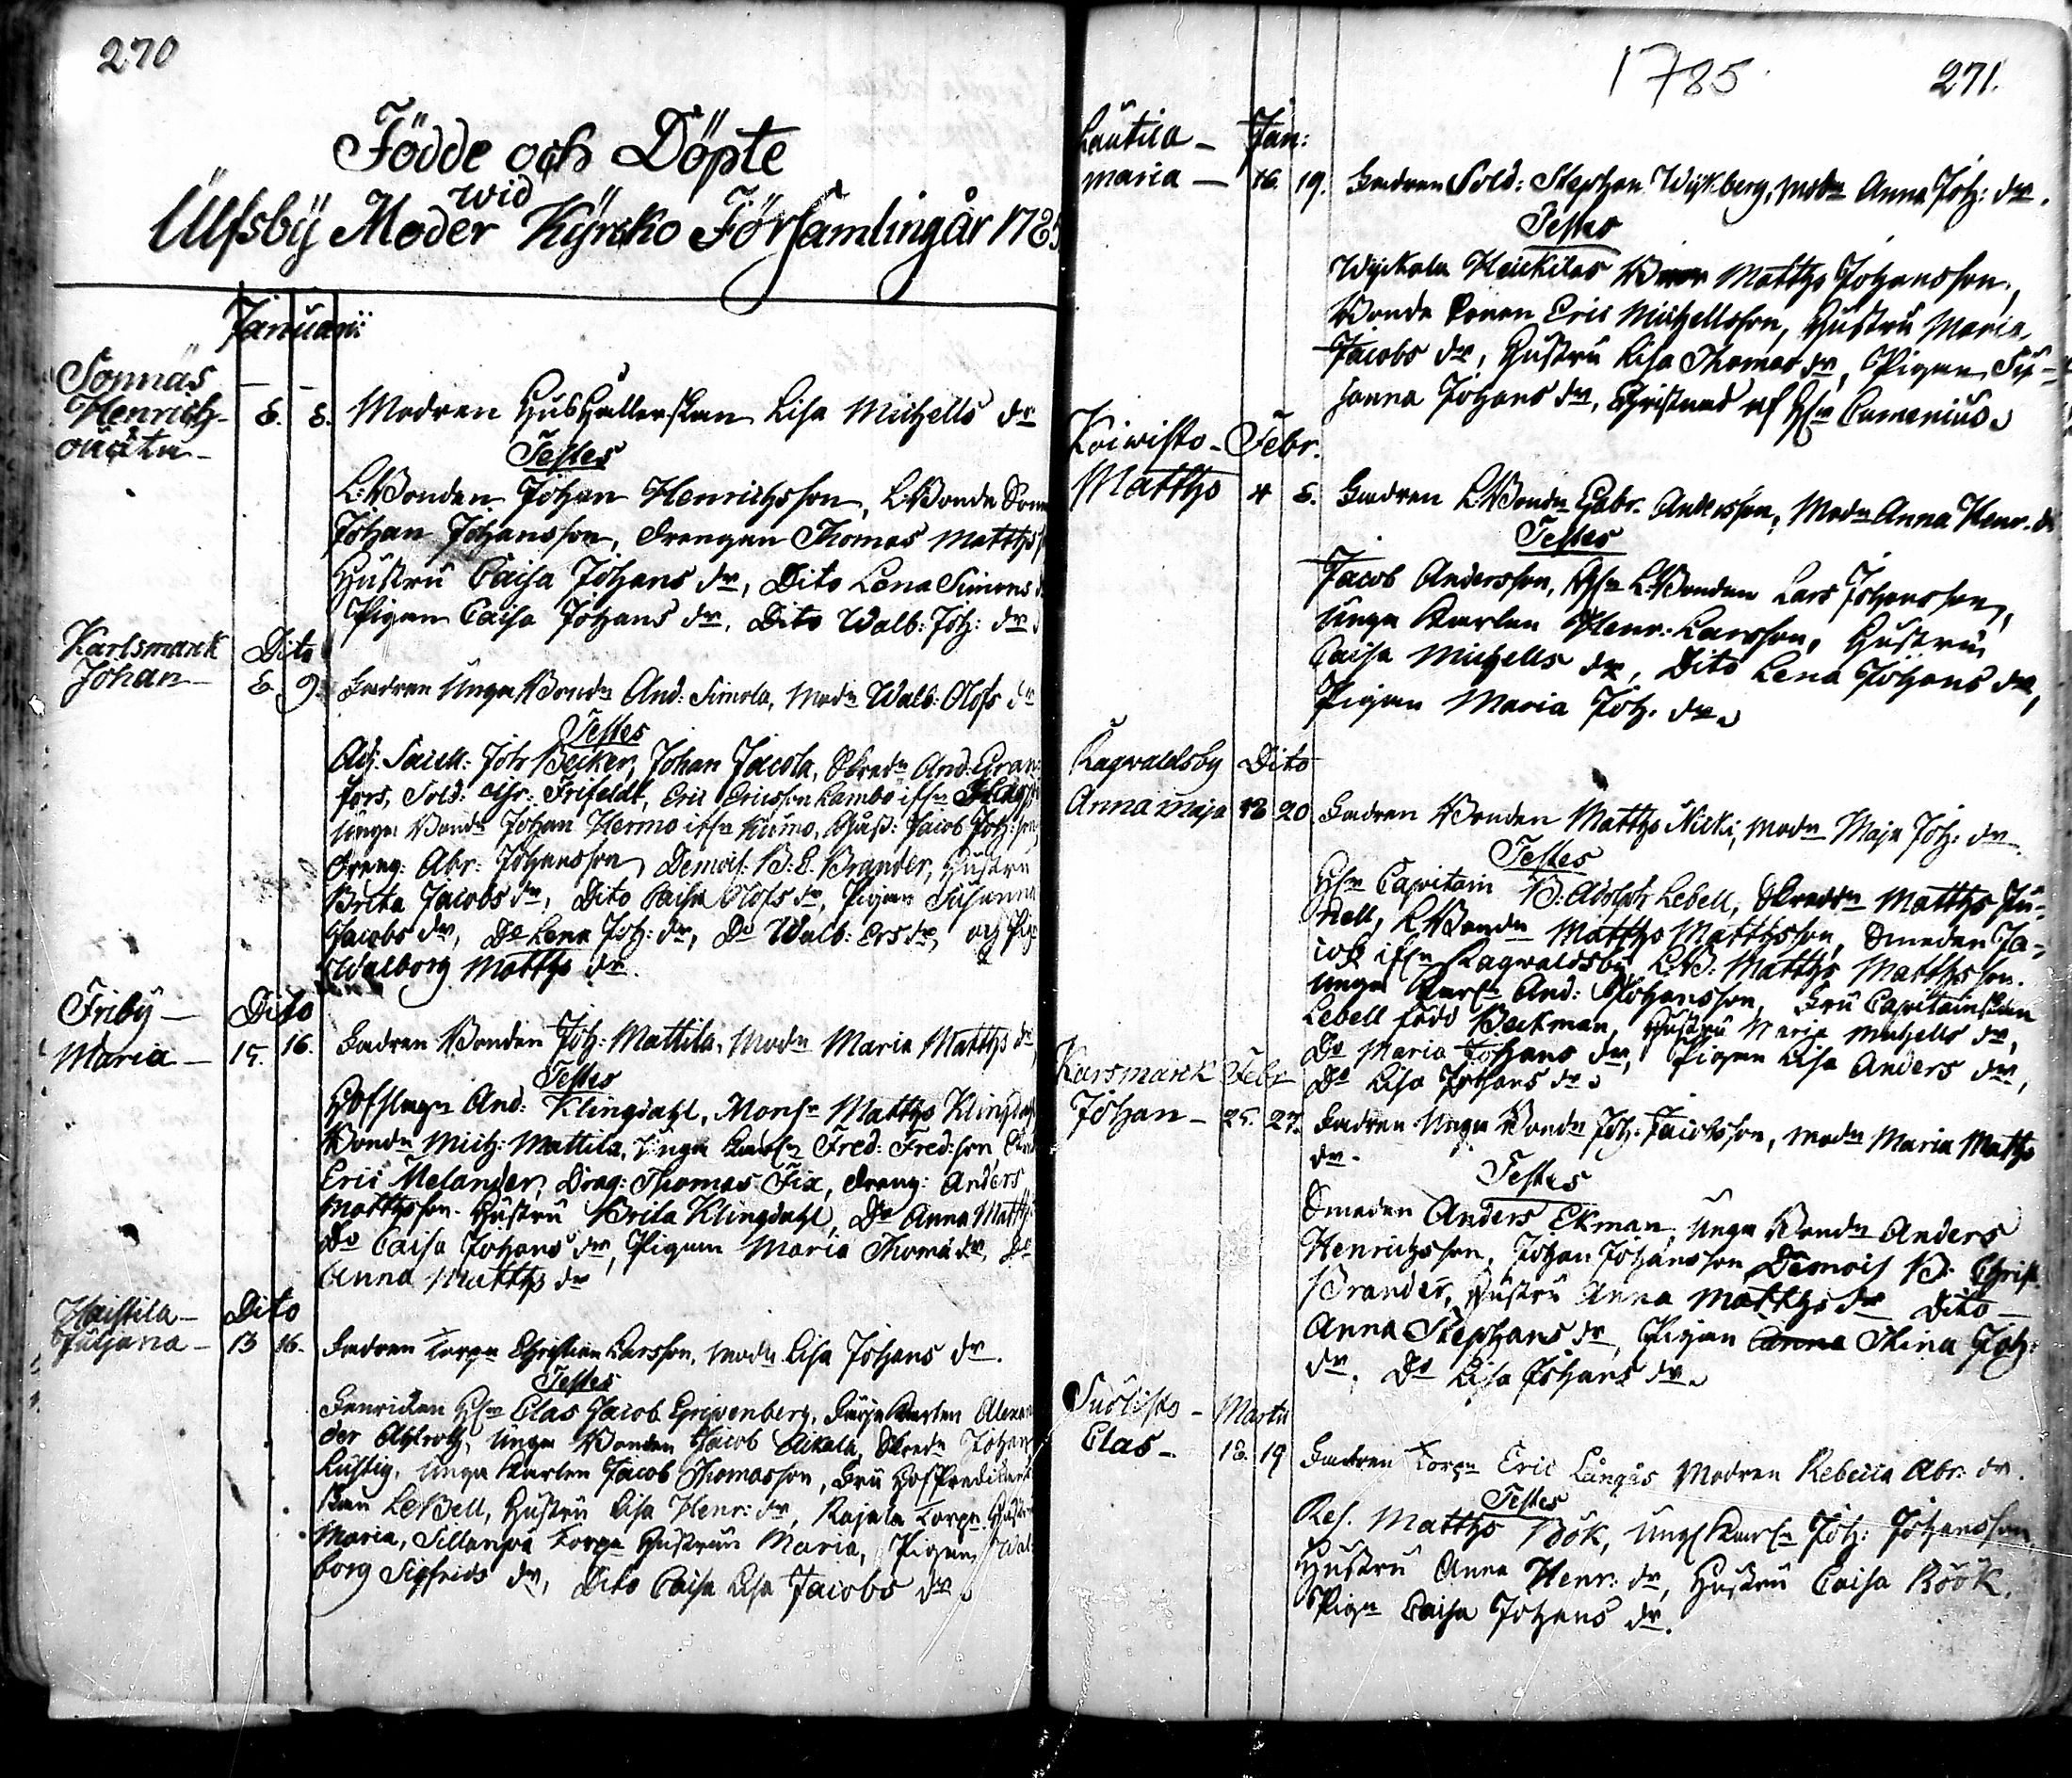 270
Födde och Döpte
wid
Ulfsby Moder Kyrcko Församling år 1785
Januarii
Sonnäs
Henrich 8. 8. Modren Hushållerskan Lisa Michells dr
oäkta
Testes
L:Bonden Johan Henrichsson, L:Bonde Sonen
Johan Johansson, drengen Thomas Matths
Hustru Caisa Johans dr, Dito Lena Simons
Pigan Caisa Johans dr, Dito Walb: Joh: dr
Karlsmarck Dito
Johan 8. 9. Fadren Unga Bondn And: Simola, Modn Walb: Olofs dr
Testes
Adj: Joh: Becker, Johan Jacola, Skredn And: Gran
fors, Sold: Frifeldt, Eric Ericsson Lambo ifrn
Unga Bondn Johan Hermo ifrn Kumo, Jacob Joh:son
Dreng: Abr: Johansson, Demois: B: E. Brander, Hustru
Brita Jacobs dr, Dito Caisa Olofs dr, Pigan Susanna
Jacobs dr, Do Lena Joh: dr, Do Walb: Ers dr, och Pig
Walborg Matths dr
Friby Dito
Maria 15. 16. Fadren Bonden Joh: Mattila, Modn Maria Matths dr
Testes
And: Klingdahl, Monsr Matths Klingdahl
Bondn Mich: Mattila, Unga Karln Fred: Fred:son
Eric Melander, Drag: Thomas Fix, dreng: Anders
Matthsson. Hustru Brita Klingdahl, Do Anna Matths
Do Caisa Johans dr, Pigan Maria Thomæ dr, Do
Anna Matths dr
Haistila Dito
Juliana 13 16. Fadren Torpn Christian Larsson, Modn Lisa Johans dr.
Testes
Fenricken Hr Clas Jacob Gripenberg, Karlen Alexan
der Ahlroth, Unga Bonden Jacob Aikala, Skredn Johan
Lustig, Unga Karlen Jacob Thomasson, Fru Hof Predikant
skan LeBell, Hustru Lisa Henr: dr, Rajala Torpn Hustru
Maria, Sillanpä Torpn Hustrun Maria, Pigan Wal
borg Sigfrids dr, Dito Caisa Lisa Jacobs dr
1785 271.
Lautila Jan:
Maria 16. 19. Fadren Sold: Stephan Wijkberg, Modn Anna Joh: dr.
Testes
Heickilas Matths Johansson,
Bonde Sonen Eric Michellsson, Hustru Maria
Jacobs dr, Hustru Lisa Thomas dr, Pigan Su-
sanna Johans dr, Christnad af Hr Cumenius
Koiwisto Febr.
Matths 4 8. Fadren L:Bondn Gabr: Andersson, Modn Anna Henr: dr
Testes
Jacob Andersson, L:Bonden Lars Johansson,
Unga Karlen Henr: Larsson, Hustru
Caisa Michells dr, Dito Lena Johans dr,
Pigan Maria Joh: dr
Ragvaldsby Dito
Anna Maja 18 20 Fadren Bonden Matths Nicki, Modn Maja Joh: dr
Testes
Hr Capitain B: Adolph Lebell, Skreddn Matths Ju-
nell, L:Bondn Matths Matthsson, Smeden Ja-
cob ifrn Ragwaldsby, L:B: Matths Matthsson.
Unga Karln And: Johansson, Fru Capitainskan
Lebell född Beckman, Hustru Maria Michells dr,
Do Maria Johans dr, Pigan Lisa Anders dr,
Do Lisa Johans dr
Karsmarck Febr
Johan 25. 27. Fadren Unga Bondn Joh: Jacobsson, Modn Maria Matths
dr.
Testes
Smeden Anders Ekman, Unga Bondn Anders
Henrichsson, Johan Johansson Demois B: Christ
Brander, Hustru Anna Matths dr Dito
Anna Stephans dr, Pigan Anna Stina Joh:
dr, Do Lisa Johans dr
Suolisto Martii
Clas 18. 19 Fadren Torpn Eric Långås Modren Rebecca Abr: dr.
Testes
Res. Matths Böök, Unge Karln Joh: Johansson
Hustru Anna Henr: dr, Hustru Caisa Böök.
Pign Caisa Johans dr.